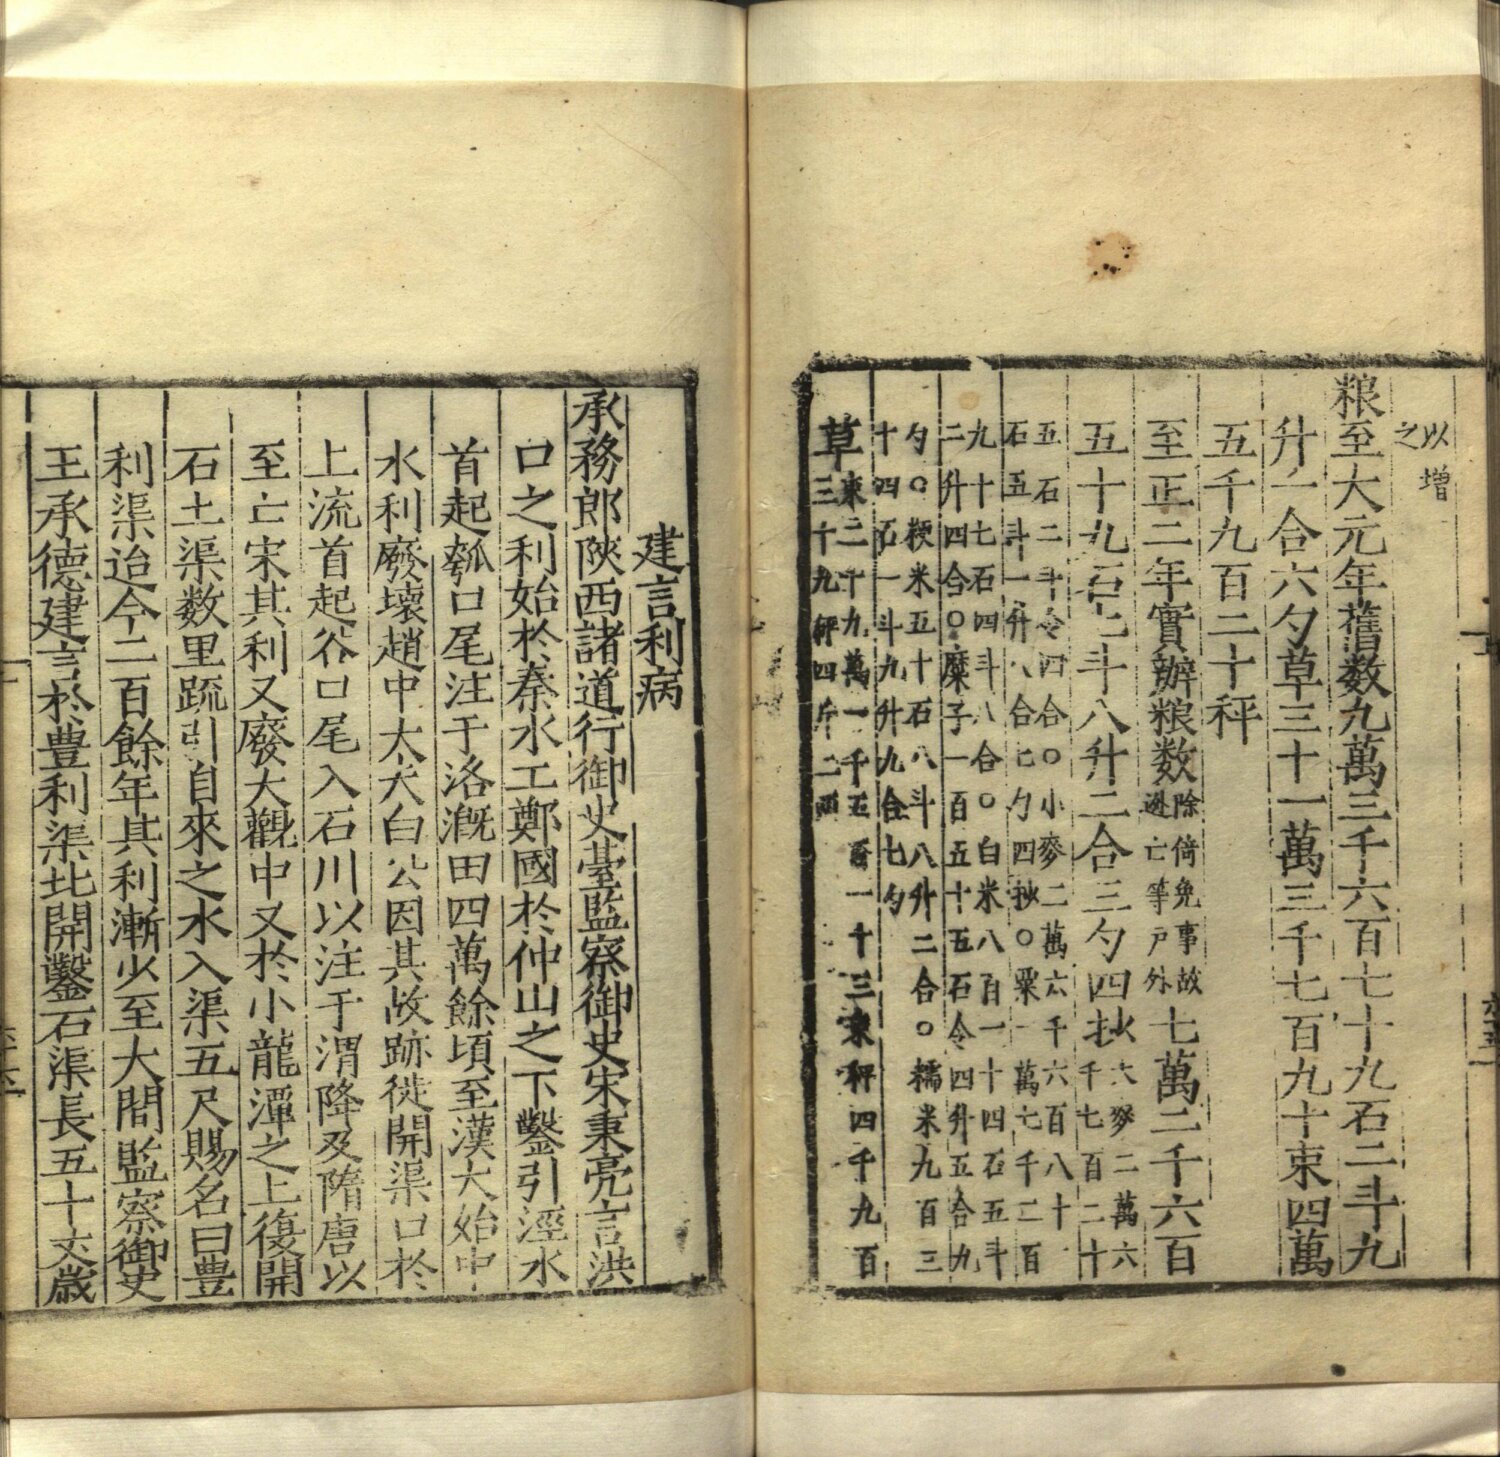 以增
之
粮至大元年舊数九萬三千六百七十九石二斗九
升一合六勺草三十一萬三千七百九十束四萬
五千九百二十秤
至正二年實辦粮数除倚免事故逃亡等戸外七萬二千六百
五十九石七斗八升二合三勺四抄大麥二萬六千七百二十
五石二斗令四合〇小麥二萬六千六百八十一
石五斗一升八合七勺四抄〇粟一萬七千二百
九十七石四斗八合〇白米八百一十四石五斗
二升四合〇糜子一百五十五石令四升五合九
勺〇粳米五十石八斗八升二合〇糯米九百三
十四石一斗九升九合七勺
草束二十九萬一千五百一十三束秤四千九百
三十九秤四斤二兩
建言利病
承務郎陝西諸道行御史臺監察御史宋秉亮言洪
口之利始於秦水工鄭國於仲山之下鑿引涇水
首起瓠口尾注于洛漑田四萬餘頃至漢大始中
水利廢壞趙中大夫白公因其故跡徙開渠口於
上流首起谷口尾入石川以注于渭降及隋唐以
至亡宋其利又廢大觀中又於小龍潭之上復開
石土渠数里䟽引自來之水入渠五尺賜名曰豊
利渠迨今二百餘年其利漸少至大間監察御史
王承德建言於豊利渠北開鑿石渠長五十丈歲